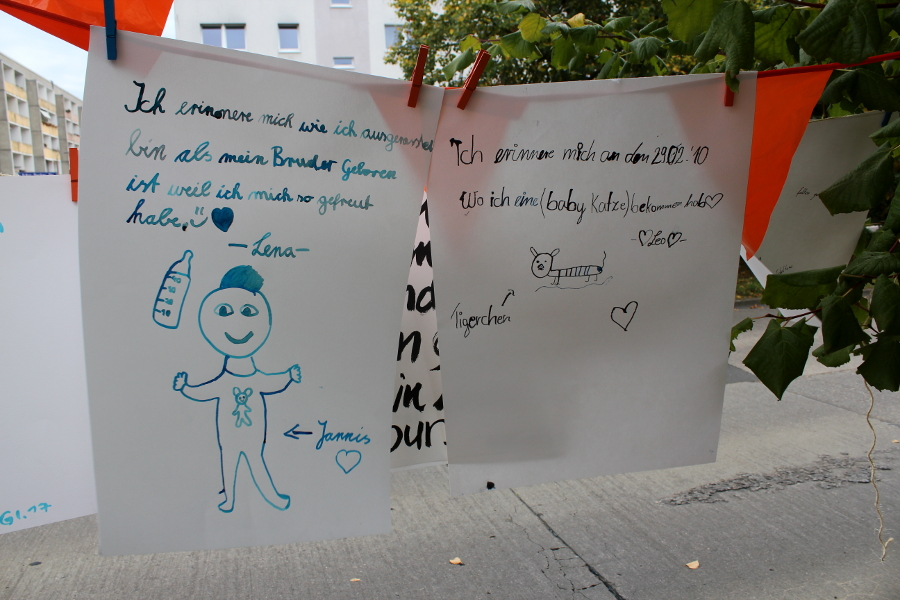 Ich erinnere mich wie ich ausgerastet
bin als mein Bruder geboren
ist weil ich mich so gefreut
habe.
-Lena-
Jannis
Ich erinnere mich an den 29.02.'10
Wo ich eine (baby Katze) bekommen hab♡
-♡Leo♡-
Tigerchen
nd
n
in
our
Gl.17